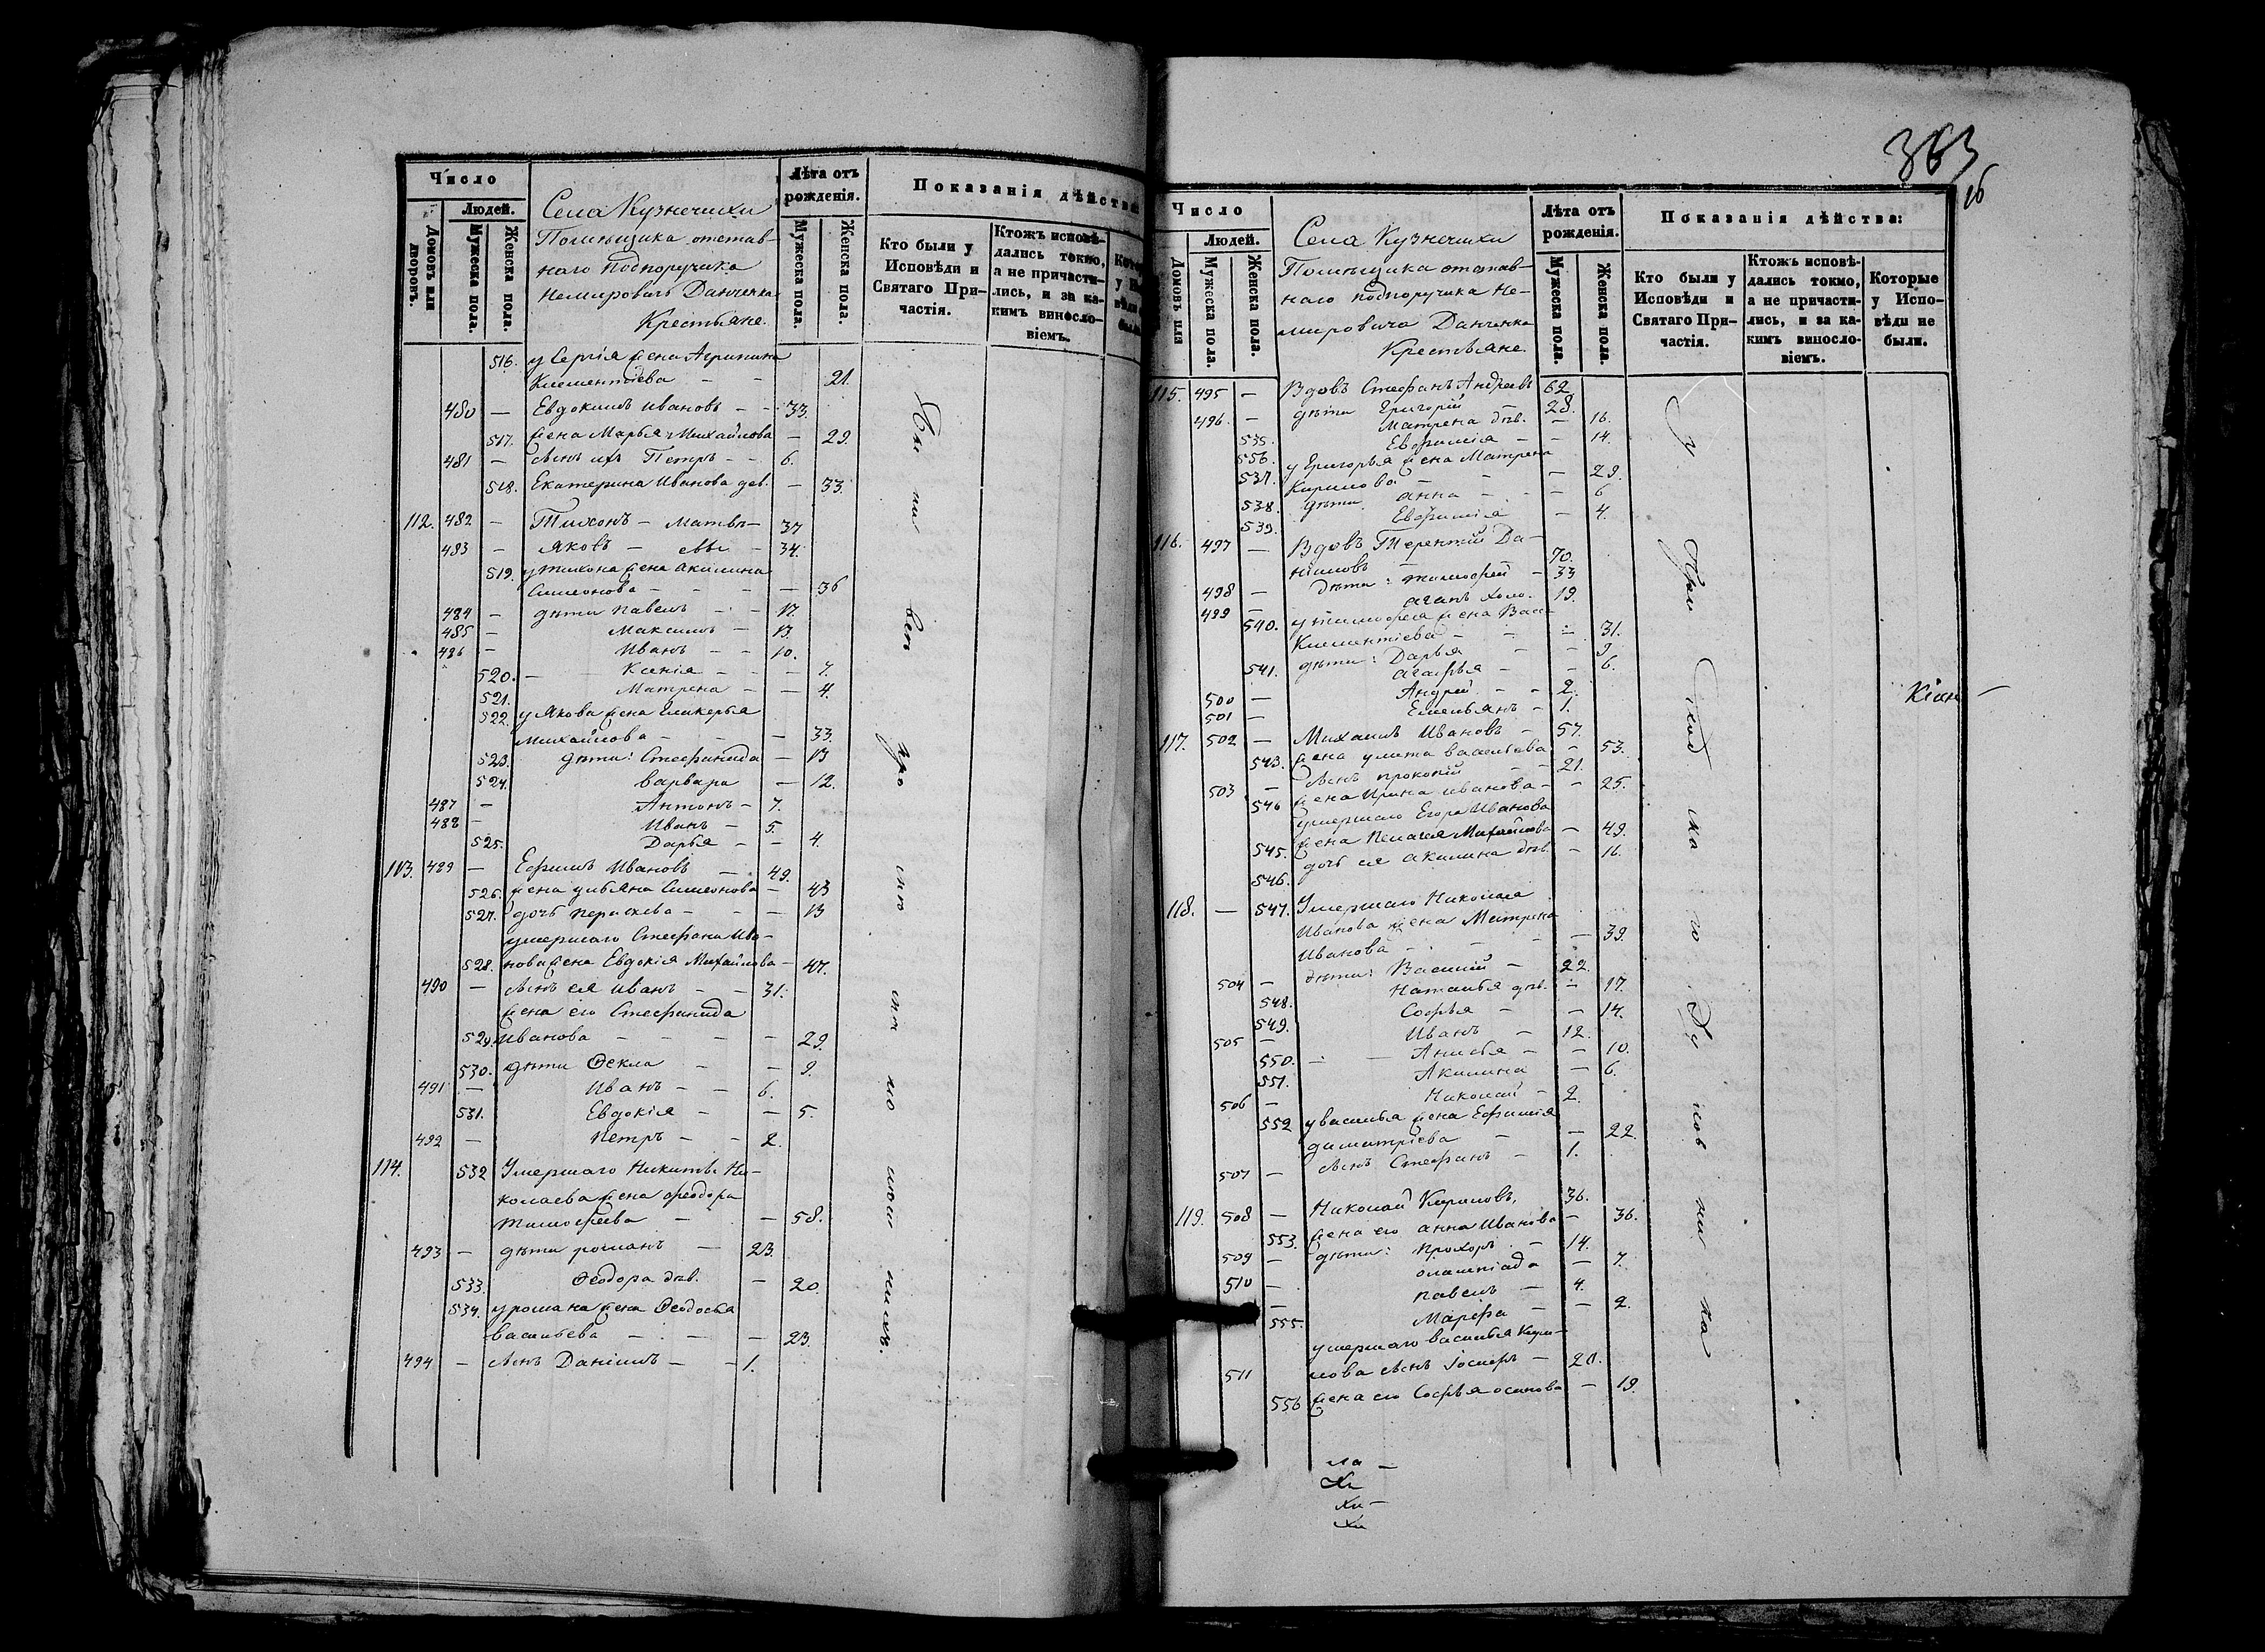 Число
Людей.
Домовъ или дворовъ.
Мужеска пола.
Женска пола.
Села Кузнечихи
Помѣщика отстав-
наго подпоручика
Немировичъ Данченка
Крестьяне.
Лѣта отъ рожденія.
Мужеска пола.
Женска пола.
Показанія дѣйства
Кто были у Исповѣди и Святаго При-частія.
Ктожъ исповѣ-дались токмо, а не причасти-лись, и за ка-кимъ винословіемъ.
516. у Сергія жена Агрипина
Климентіева - - 21.
480 — Евдокимъ Ивановъ - - 33.
517. жена Марья Михайлова — 29.
481 — сынъ ихъ Петръ - - 6.
518. Екатерина Иванова дев. — 33.
112. 482 — Тихонъ — Матвѣ— 37
483 — Яковъ — 34.
519. у Тихона жена Акилина
Симеонова - - - — 36
484 — дѣти Павелъ - - 17.
485 — Максимъ — 13.
486 — Иванъ - - 10.
520. — Ксенія - - - 7.
521. Матрена - — 4.
522. у Якова жена Гликерья
Михайлова - - — 33.
523. дѣти: Стефанида — 13
524. Варвара — 12.
487 — Антонъ - 7.
488 — Иванъ - 5.
525. Дарья - - 4.
113. 489 — Ефимъ Ивановъ — 49.
526. жена Ульяна Симеонова — 43
527. дочь Параскева - - — 13
умершаго Стефана Ива-
528. нова жена Евдокія Михайлова — 47.
490 — сынъ ея Иванъ - - 31.
жена его Стефанида
529. Иванова - - - — 29.
530. дѣти Ѳекла - — 9.
491 — Иванъ - - 6.
531. Евдокія - — 5.
492 — Петръ - - 2.
114. 532 Умершаго Никиты Ни-
колаева жена Феодора
Тимофеева - — 58.
493 — дѣти Романъ — 23.
533. Ѳеодора дѣв. — 20.
534. у Романа жена Ѳеодосья
Васильева - - — 23.
494 — сынъ Даніилъ - - 1.
363
Число
Людей.
Домовъ или
Мужеска пола
Женска пола.
Села Кузнечихи
Помѣщика отстав-
наго подпоручика Не-
мировича Данченка
Крестьяне.
Лѣта отъ рожденія.
Мужеска пола.
Женска пола.
Показанія дѣйства:
Кто были у Исповѣди и Святаго При-частія.
Ктожъ исповѣ-дались токмо, а не причасти-лись, и за ка-кимъ винословіемъ.
Которые у Испо-вѣди не были.
115. 495 — Вдовъ Стефанъ Андреевъ 62
496 — дѣти Григорій — 28.
535. Матрена дѣв. — 16.
556. Евфимія - — 14.
537. у Григорья жена Матрена
Кирилова - - — 29.
538. дѣти Анна - - — 6
539. Евфимія — 4.
116. 497 — Вдовъ Терентій Да-
ниловъ — 70.
498 — дѣти: Тимофей — 33
499 — Агапъ холо. 19.
540. у Тимофея жена Васс
Климентіева - - — 31.
541. дѣти: Дарья — — 9
Агафья - — 6.
500 — Андрей - - 2.
501 — Емельянъ - 1.
117. 502 — Михаилъ Ивановъ - 57.
543. жена Улита Васильева — 53.
503 — сынъ Прокопій — 21.
546 жена Ирина Иванова - — 25.
умершаго Егора Иванова
545. жена Пелагея Михайлова — 49.
546. дочь ея Акилина дѣв. — 16.
118. — 547. Умершаго Николая
Иванова жена Матрена
Иванова - - — 39.
504 — дѣти: Василій - 22.
548. Наталья дѣв. — 17.
549. Софья - — 14.
505 — Иванъ - 12.
550. Анисья - — 10.
551. Акилина — 6.
506 — Николай - 2.
552 у Василья жена Ефимія
Димитріева - — 22.
507 — сынъ Стефанъ - 1.
119. 508 — Николай Кириловъ, 36.
553. жена его Анна Иванова — 36.
509 — дѣти: Прохоръ - 14.
Олимпіада — 7.
510 — Павелъ - 4.
555. Марѳа - — 2.
умершаго Василья Кири-
511 лова сынъ Іосифъ — 20.
556 жена его Софья Осипова — 19.